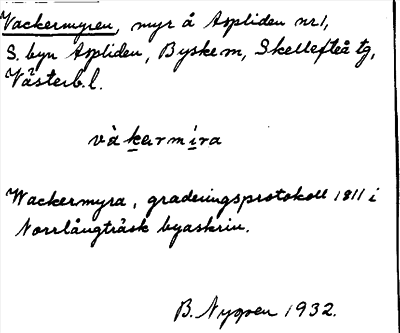 Vackermyren, myr å Aspliden nr 1,
S. byn Aspliden, Byske m, Skellefteå tg,
Västerb. l.
vàkarmíra
Wackermyra, graderingsprotokoll 1811 i
Norrlångträsk byaskrin.
B. Nygren 1932.